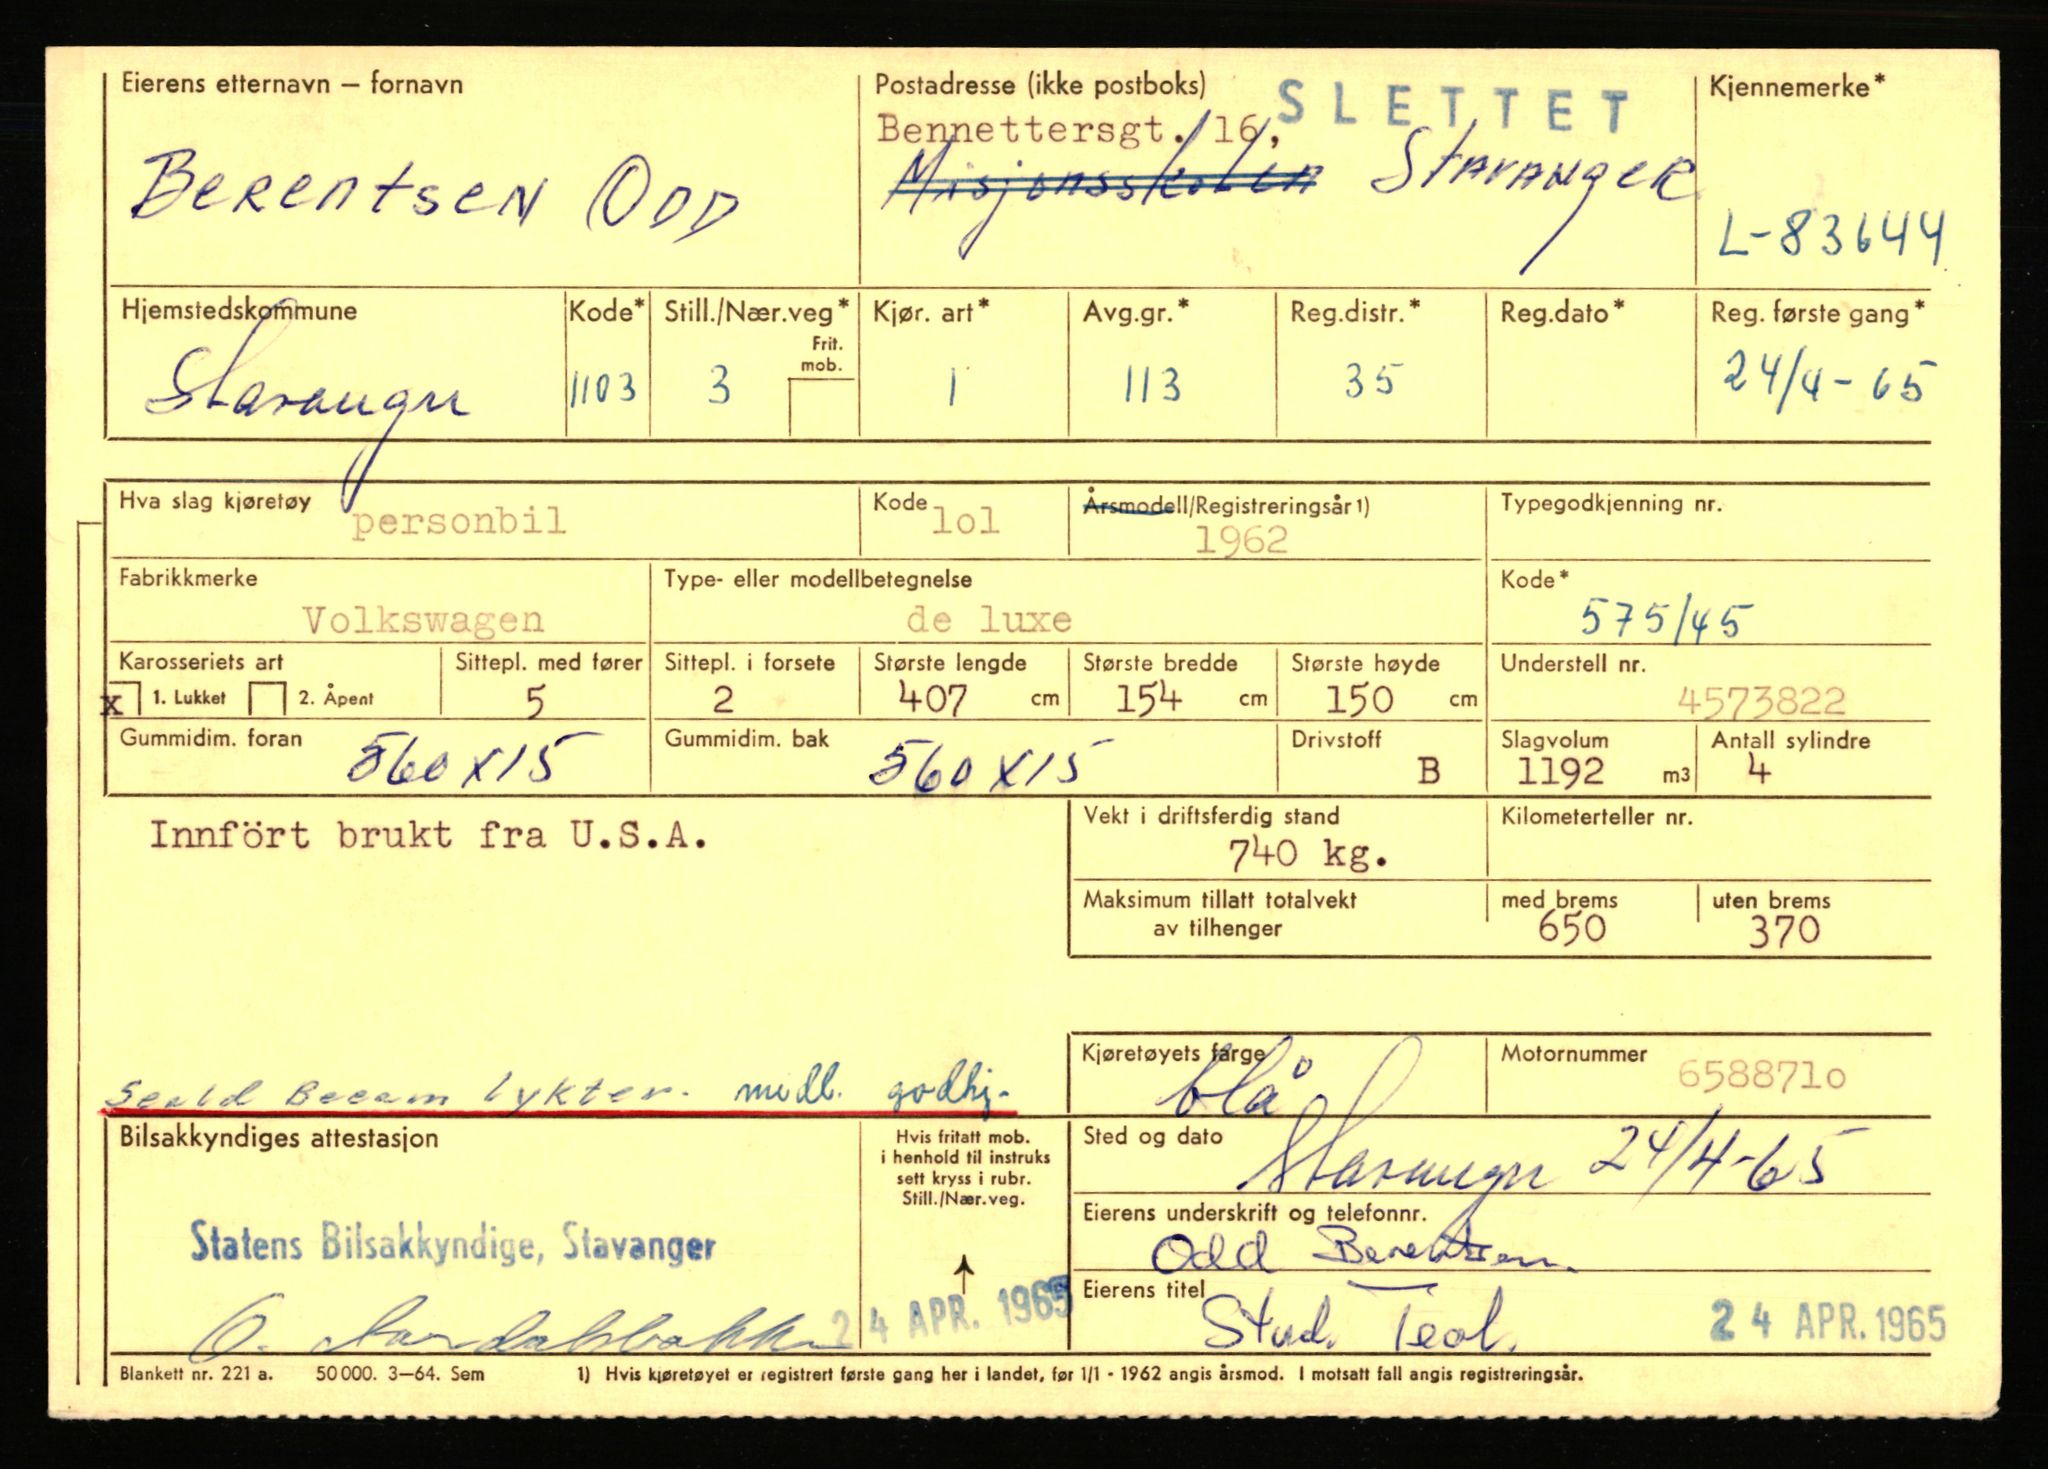 Eierens etternavn – fornavn
Postadresse (ikke postboks)
SLETTET
Kjennemerke*
Bennettersgt. 16,
Berentsen Odd
Misjonsskolen Stavanger
L-83644
Hjemstedskommune
Kode*
Still./Nær.veg*
Frit. mob.
Kjør. art*
Avg.gr.*
Reg.distr.*
Reg.dato*
Reg. første gang*
Stavanger
1103
3
1
113
35
24/4-65
Hva slag kjøretøy
personbil
Kode
lol
Årsmodell/Registreringsår 1)
1962
Typegodkjenning nr.
Fabrikkmerke
Volkswagen
Type- eller modellbetegnelse
de luxe
Kode*
575/45
Karosseriets art
x 1. Lukket 2. Åpent
Sittepl. med fører
5
Sittepl. i forsete
2
Største lengde
407 cm
Største bredde
154 cm
Største høyde
150 cm
Understell nr.
4573822
Gummidim. foran
560x15
Gummidim. bak
560x15
Drivstoff
B
Slagvolum
1192 m3
Antall sylindre
4
Innfört brukt fra U.S.A.
Vekt i driftsferdig stand
740 kg.
Kilometerteller nr.
Maksimum tillatt totalvekt
av tilhenger
med brems
650
uten brems
370
Seald Beeam lykter. midl. godkj.
Kjøretøyets farge
blå
Motornummer
658871o
Bilsakkyndiges attestasjon
Hvis fritatt mob.
i henhold til instruks
sett kryss i rubr.
Still./Nær.veg.
Sted og dato
Stavanger 24/4-65
Statens Bilsakkyndige, Stavanger
Eierens underskrift og telefonnr.
Odd Berentsen
24 APR. 1965
Eierens titel
Stud. Teol.
24 APR. 1965
Blankett nr. 221 a. 50 000. 3–64. Sem
1) Hvis kjøretøyet er registrert første gang her i landet, før 1/1 - 1962 angis årsmod. I motsatt fall angis registreringsår.